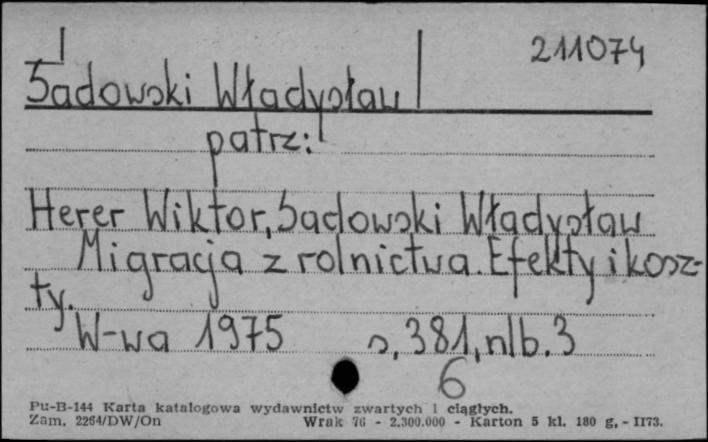 211074
Sadowski Władysław
patrz:
Herer Wiktor, Sadowski Władysław
Migracja z rolnictwa. Efekty i kosz-
ty.
W-wa 1975 s, 381, nlb. 3
6
Pu-B-144 Karta katalogowa wydawnictw zwartych i ciągłych.
Zam. 2264/DW/On Wrak 76 - 2.300.000 - Karton 5 kl. 180 g, - II73.